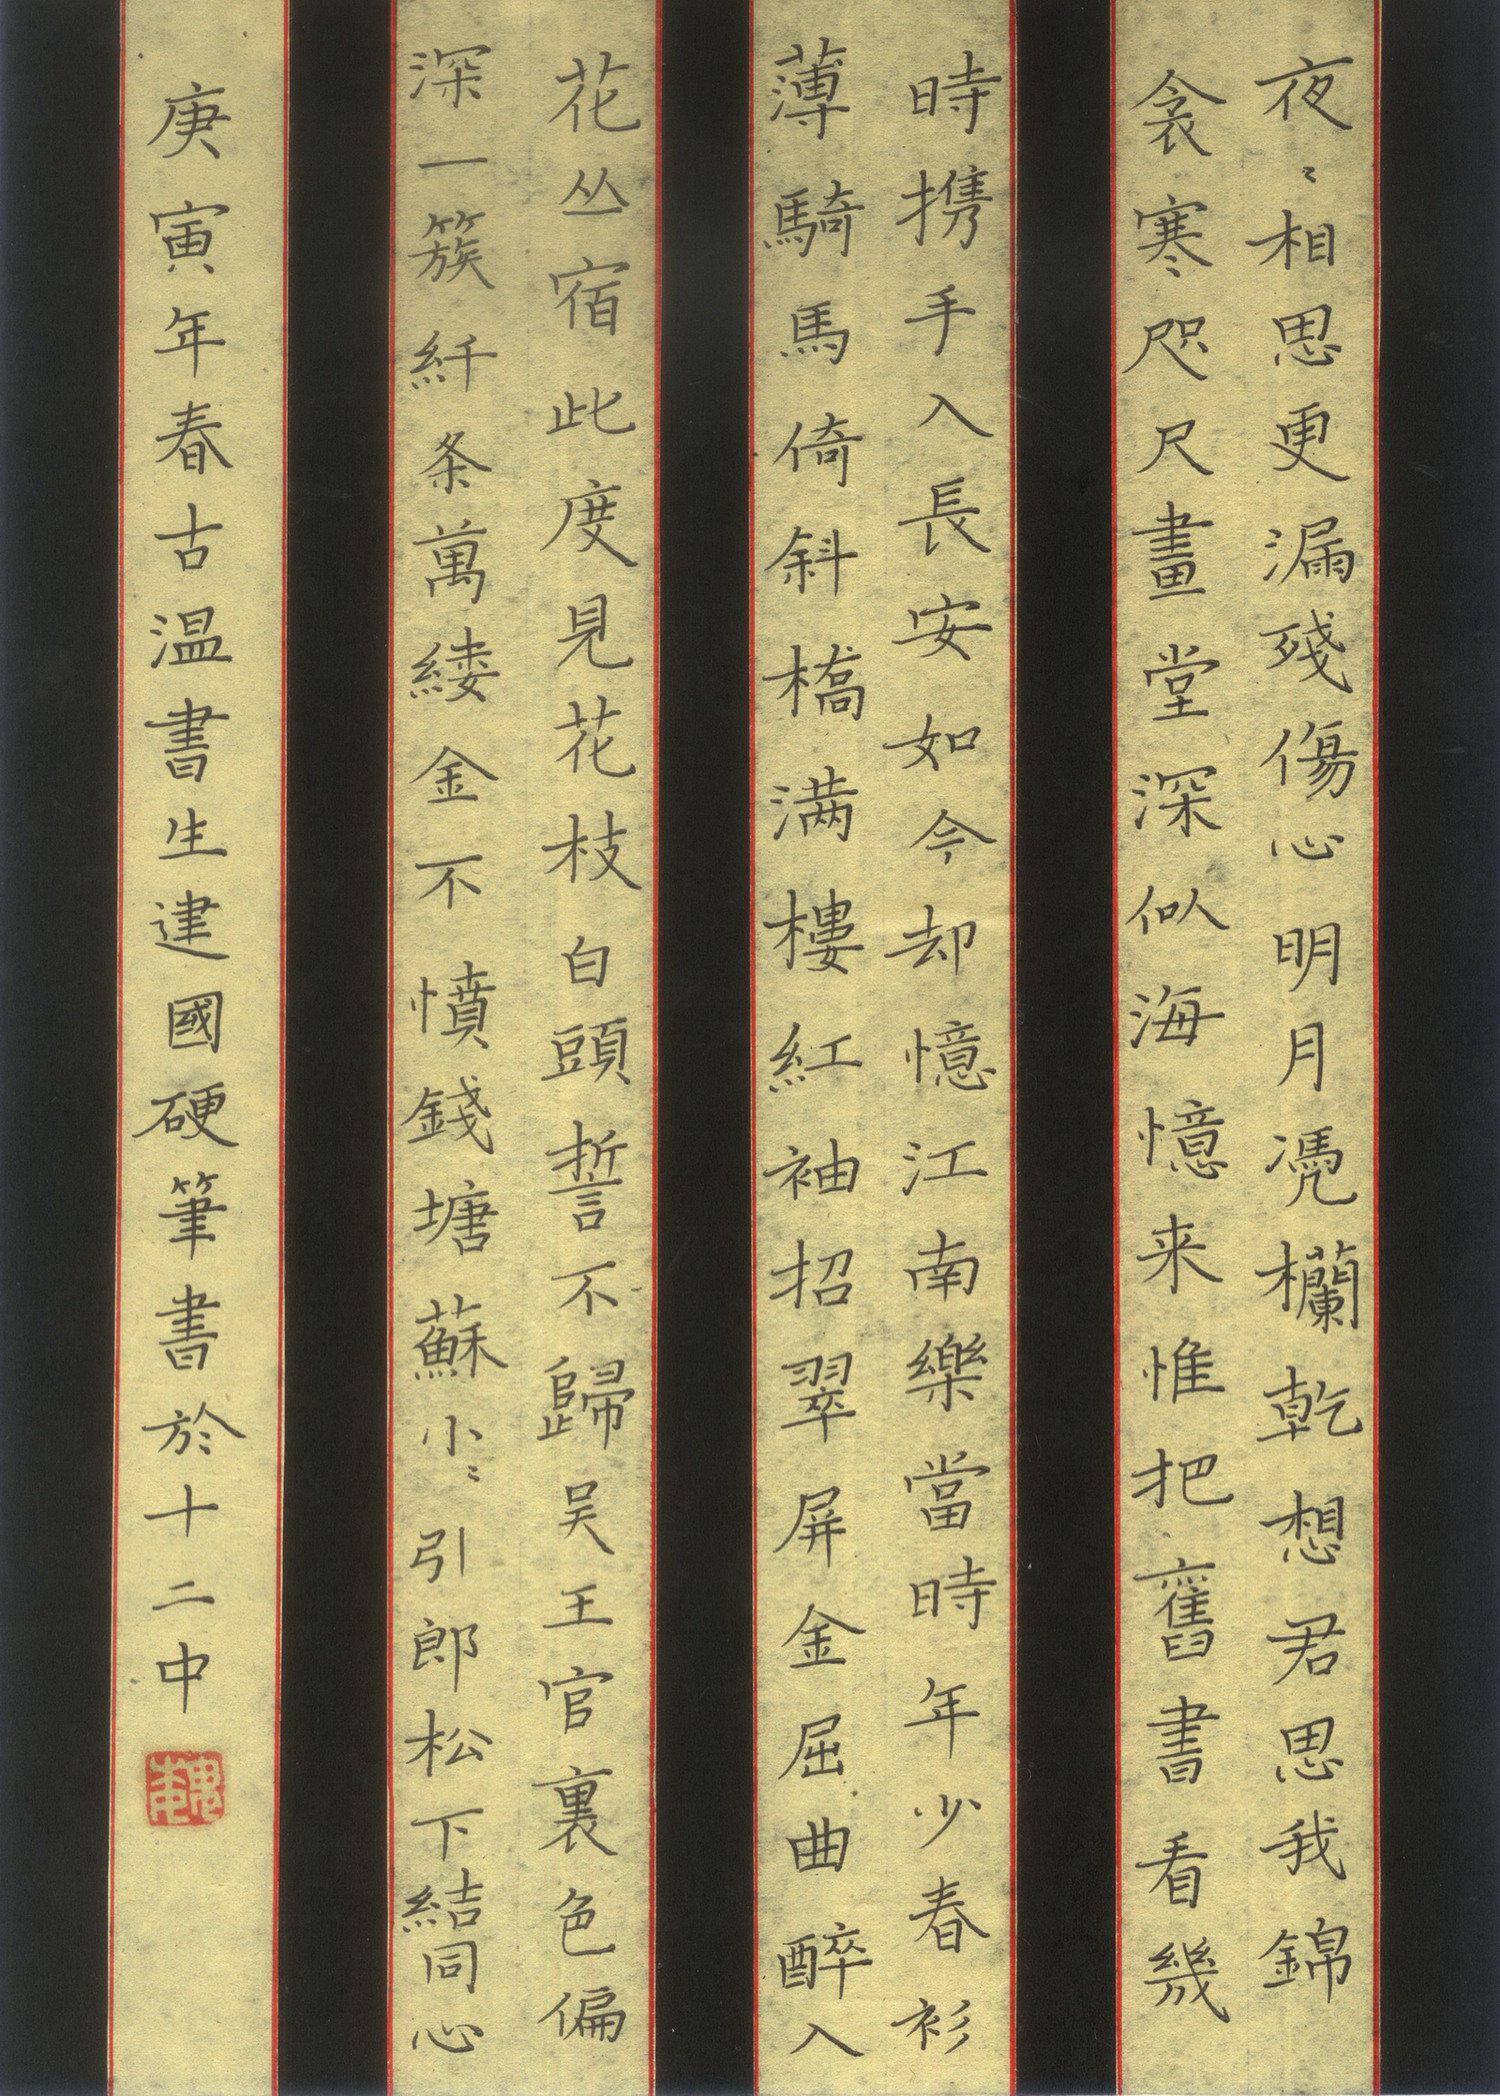 夜〻相思更漏殘傷心明月凴欄乾想君思我錦
衾寒咫尺畫堂深似海憶来惟把舊書看幾
時携手入長安如今却憶江南樂當時年少春衫
薄騎馬倚斜橋满樓紅袖招翠屏金屈曲醉入
花丛宿此度見花枝白頭誓不歸吴王官裏色偏
深一簇紆条萬縷金不憤錢塘蘇小〻引郎松下結同心
庚寅年春古温書生建國硬筆書於十二中